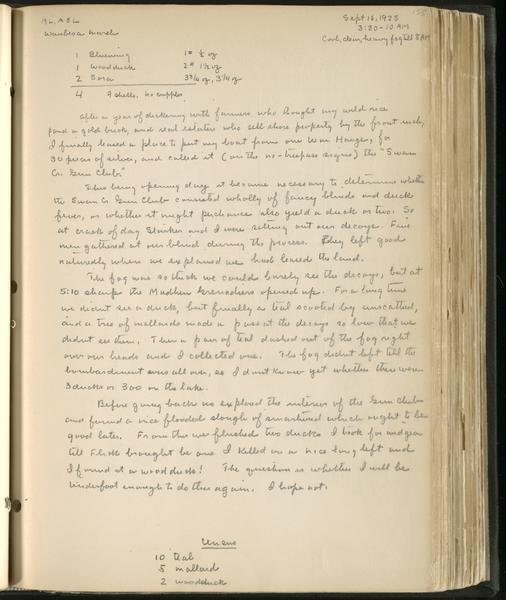 155
AL, ASL Sept 16, 1928
Waubesa Marsh 3:30 - 10 AM
Cool, clear, heavy fog till 8 AM
1 Bluewing 1# ½ oz
1 Woodduck 2# 1½ oz
2 Sora 3¾ oz, 3¼ oz
4 9 shells. No cripples
After a year of dickering with farmers who thought my wild rice
pond a gold brick, and real estaters who sell shore property by the front inch,
I finally leased a place to put my boat from one Haage, for
30 pieces of silver, and called it (on the no-trespass signs) the "Swan
Cr. Gun Club."
This being opening day it became necessary to determine whether
the Swan Cr Gun Club consisted wholly of fancy blinds and duck
fever, or whether it might perchance also yield a duck or two. So
at crack of day Starker and I were setting out our decoys. Five
men gathered at our blind during the process. They left good
naturedly when we explained we had leased the land.
The fog was so thick we could barely see the decoys, but at
5:10 sharp the Mudhen Grenadiers opened up. For a long time
we didnt see a duck, but finally a teal scooted by unscathed,
and a trio of mallards made a pass at the decoys so low that we
didnt see them. Then a pair of teal dashed out of the fog right
over our heads and I collected one. The fog didnt lift till the
bombardment was all over, so I dont know yet whether there were
3 ducks or 300 on the lake.
Before going back we explored the interior of the Gun Club
and found a nice flooded slough of smartweed which ought to be
good later. From this we flushed two ducks I took for widgeon
till Flick brought be one I killed on a nice long left and
I found it a woodduck! The question is whether I will be
underfoot enough to do this again. I hope not.
Census
10 teal
5 mallard
2 woodduck